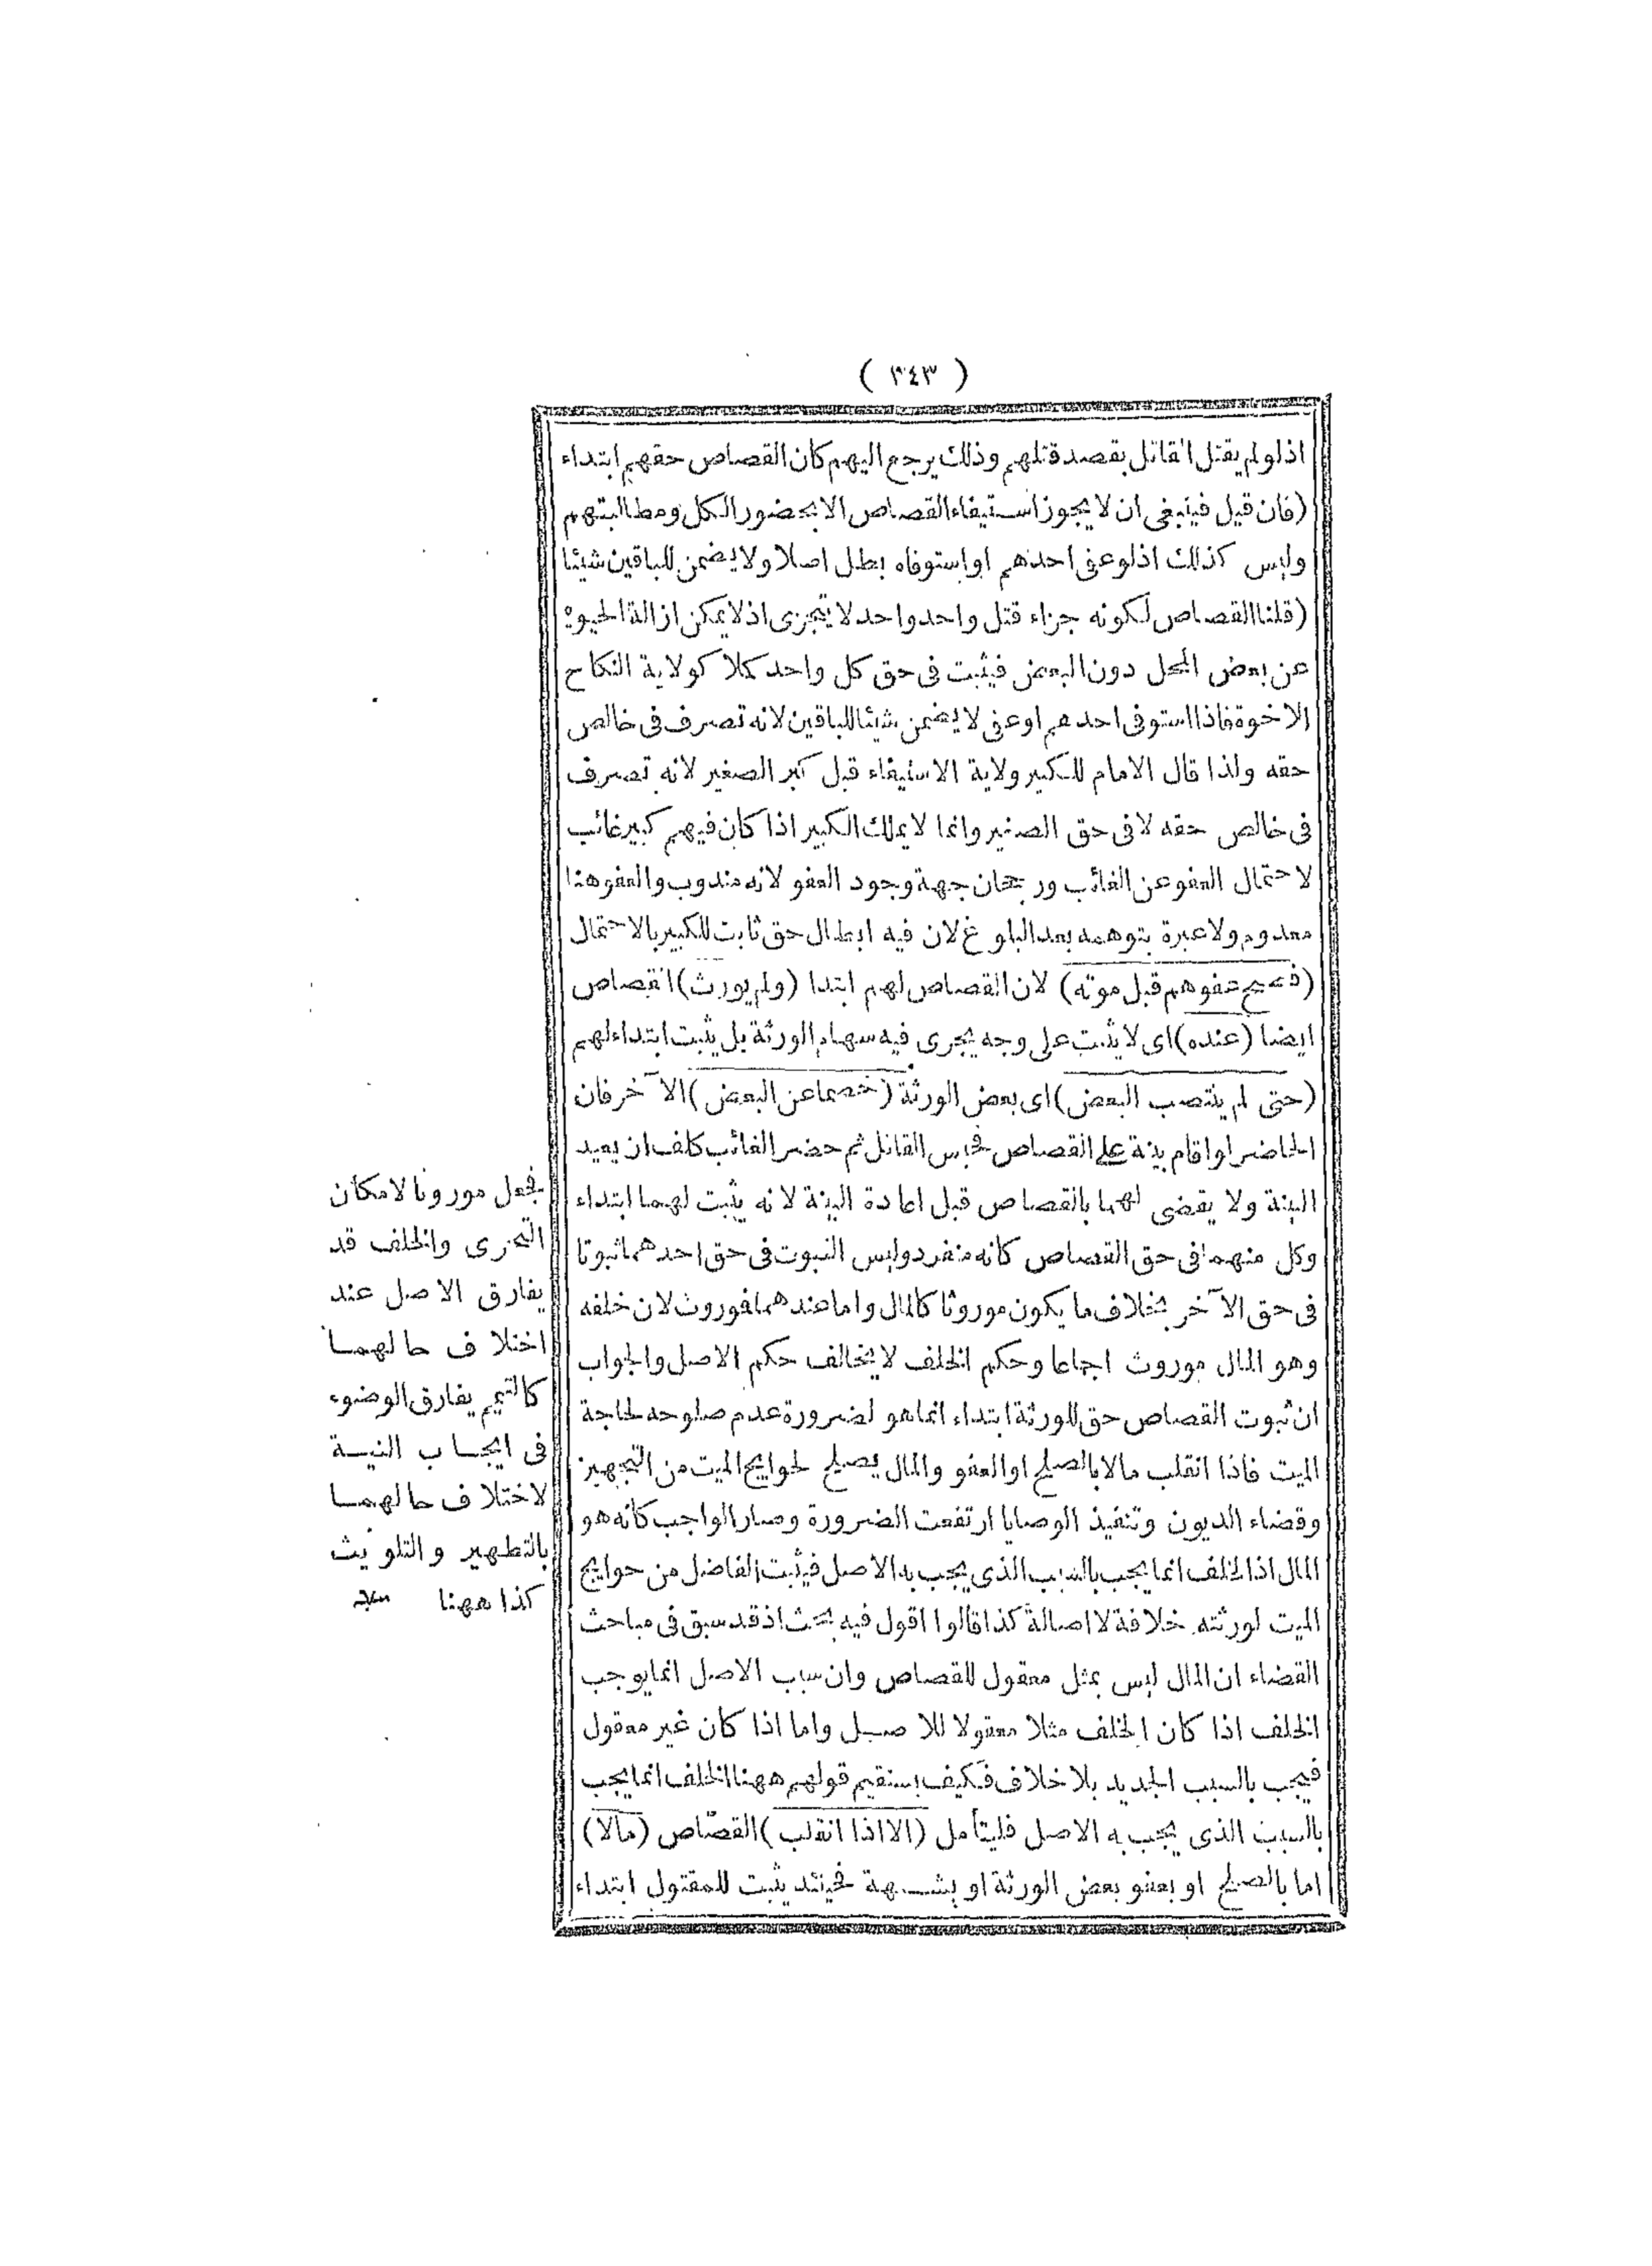 ( ٣٤٣ )
اذلولم يقتل القاتل بقصد قتلهم وذلك يرجع اليهم كان القصاص حقهم ابتداء
(فان قيل فينبغى ان لا يجوز استيفاء القصاص الا بحضور الكل ومطالبتهم
وليس كذلك اذلوعفى احدهم اواستوفاه بطل اصلا ولا يضمن للباقين شيئا
(قلنا القصاص لكونه جزاء قتل واحد واحد لا يتجزى اذلا يمكن ازالة الحيوة
عن بعض المحل دون البعض فيثبت فى حق كل واحد كملا كولاية النكاح
الاخوة فاذا استوفى احدهم اوعفى لا يضمن شيئا للباقين لانه تصرف فى خالص
حقه ولذا قال الامام للكبير ولاية الاستيفاء قبل كبر الصغير لانه تصرف
فى خالص حقه لا فى حق الصغير وانما لا يملك الكبير اذا كان فيهم كبير غائب
لاحتمال العفو عن الغائب ورجحان جهة وجود العفو لانه مندوب والعفو هنا
معدوم ولا عبرة بتوهمه بعد البلوغ لان فيه ابطال حق ثابت للكبير بالاحتمال
(فصح عفوهم قبل موته) لان القصاص لهم ابتدا (ولم يورث) القصاص
ايضا (عنده) اى لا يثبت على وجه يجرى فيه سهام الورثة بل يثبت ابتداء لهم
(حتى لم ينتصب البعض) اى بعض الورثة (خصما عن البعض) الآخر فان
الحاضر لواقام بينة على القصاص فحبس القاتل ثم حضر الغائب كلف ان يعيد
البينة ولا يقضى لهما بالقصاص قبل اعادة البينة لانه يثبت لهما ابتداء
وكل منهما فى حق القصاص كانه منفرد وليس الثبوت فى حق احدهما ثبوتا
فى حق الآخر بخلاف ما يكون موروثا كالمال واما عندهما فموروث لان خلفه
وهو المال موروث اجماعا وحكم الخلف لا يخالف حكم الاصل والجواب
ان ثبوت القصاص حق للورثة ابتداء انما هو لضرورة عدم صلوحه لحاجة
الميت فاذا انقلب مالا بالصلح او العفو والمال يصلح لحوايج الميت من التجهيز
وقضاء الديون وتنفيذ الوصايا ارتفعت الضرورة وصار الواجب كأنه هو
المال اذ الخلف انما يجب بالسبب الذى يجب به الاصل فيثبت الفاضل من حوايج
الميت لورثته خلافة لا اصالة كذا قالوا اقول فيه بحث اذ قد سبق فى مباحث
القضاء ان المال ليس بمثل معقول للقصاص وان سبب الاصل انما يوجب
الخلف اذا كان الخلف مثلا معقولا للاصل واما اذا كان غير معقول
فيجب بالسبب الجديد بلا خلاف فكيف يستقيم قولهم ههنا الخلف انما يجب
بالسبب الذى يجب به الاصل فليتأمل (الا اذا انقلب) القصاص (مالا)
اما بالصلح او بعفو بعض الورثة او بشبهة فحينئذ يثبت للمقتول ابتداء
فجعل موروثا لامكان
التجزى والخلف قد
يفارق الاصل عند
اختلاف حالهما
كالتيم يفارق الوضوء
فى ايجاب النية
لاختلاف حالهما
بالتطهير والتلويث
كذا ههنا